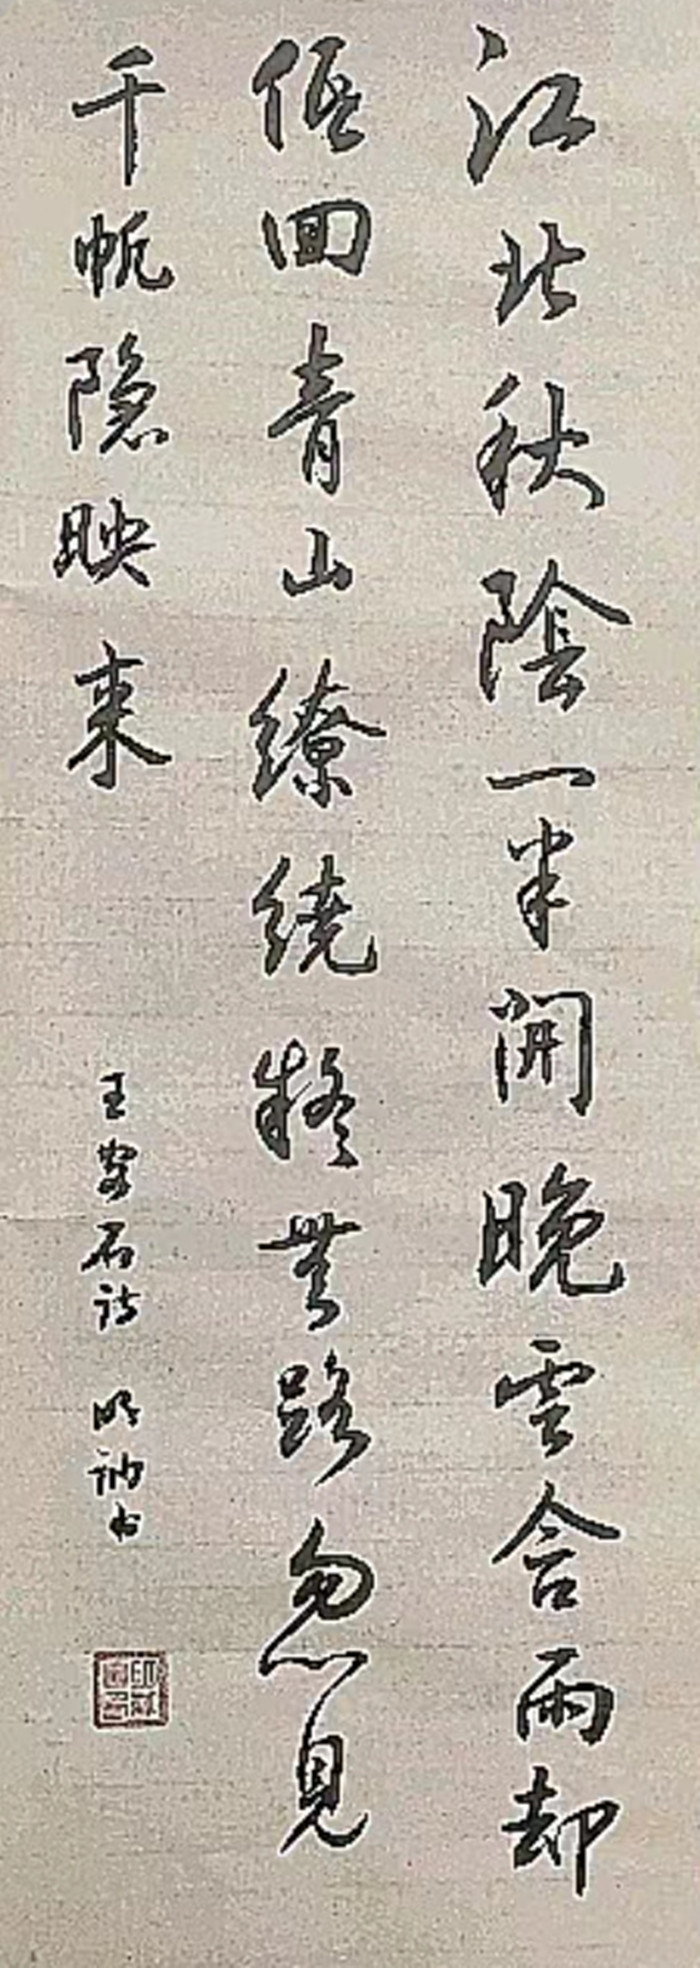 江北秋陰一半開晚雲含雨却
低回青山繚繞疑無路忽見
千帆隐映来
王安石诗 明訥书